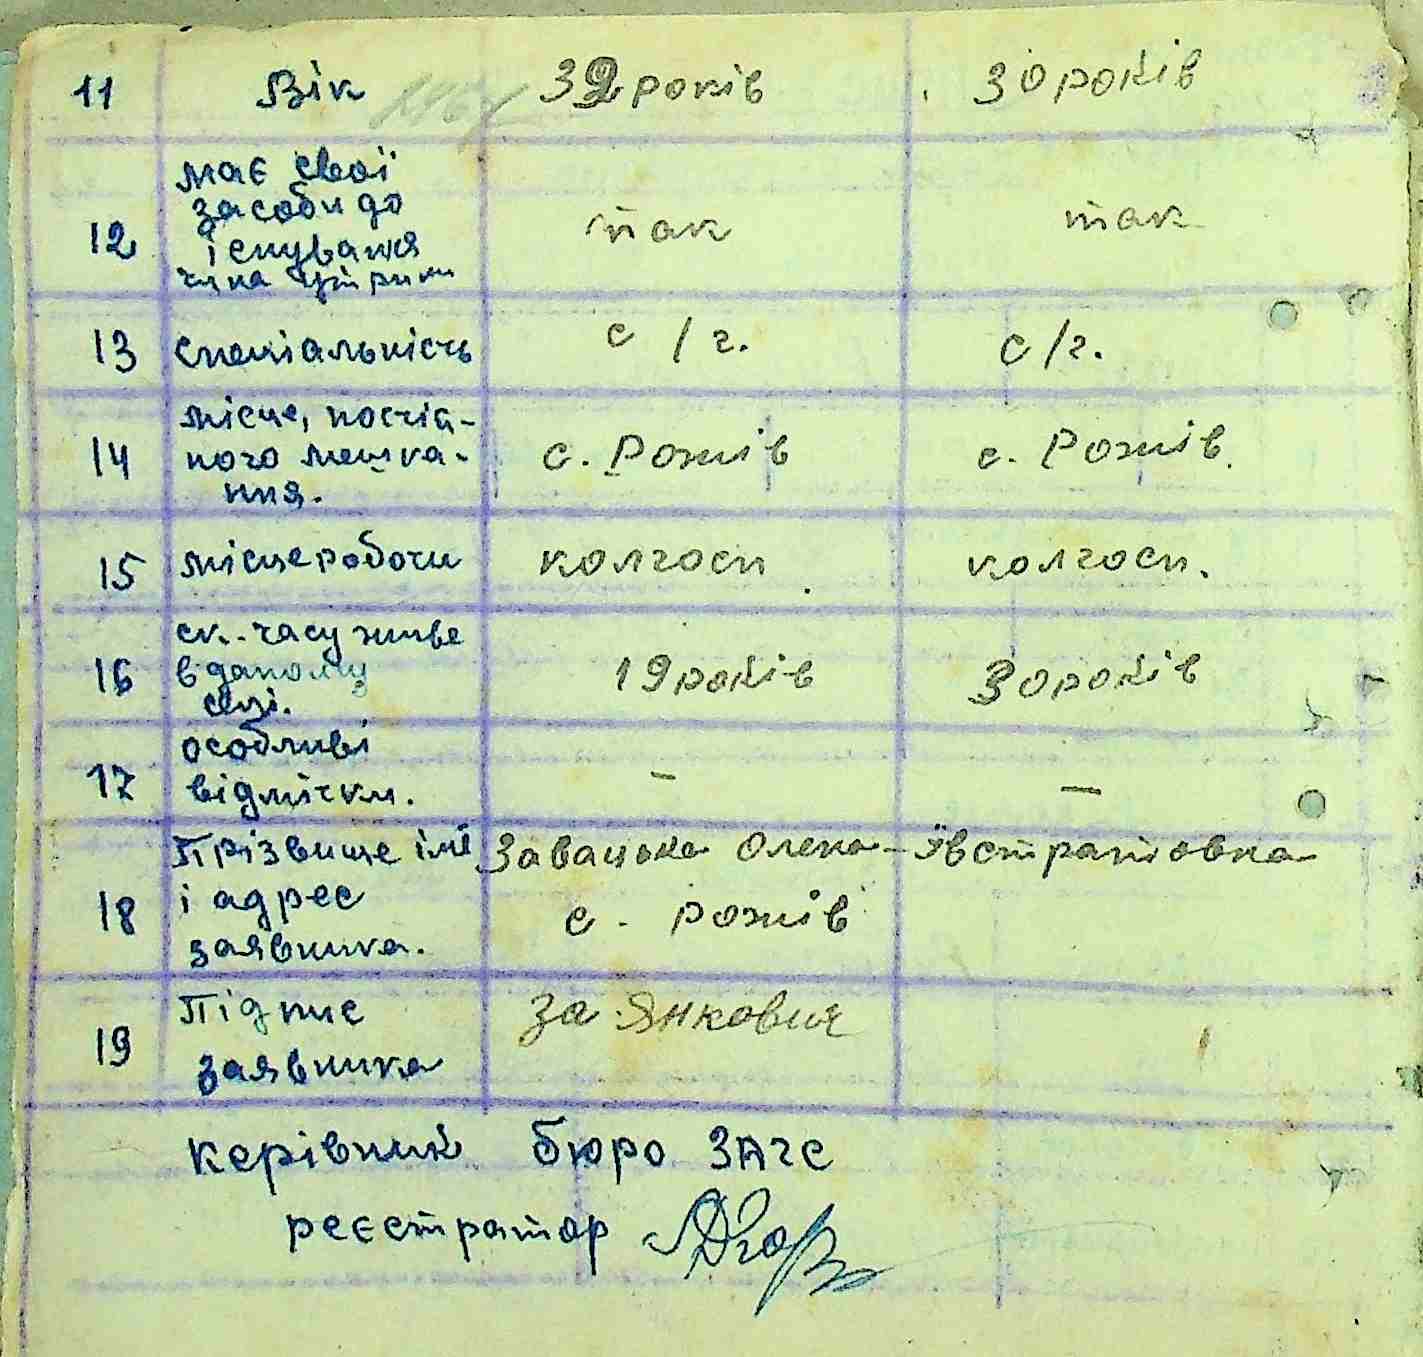 11 Вік 32 років 30 років
має свої
засоби до
12 існування так так
чи на утрим
13 спеціальність с/г. с/г.
місце, постія-
14 ного мешка- с. Рожів с. Рожів.
ння.
15 місце роботи колгосп колгосп.
ск. часу живе
16 в даному 19 років 30 років
селі.
особливі
17 відмітки. – –
Прізвище імя Завацька Олена Ївстратовна
18 і адрес с. рожів
заявника.
Підпис за Янкович
19 заявника
керівник бюро ЗАГС
реєстратор